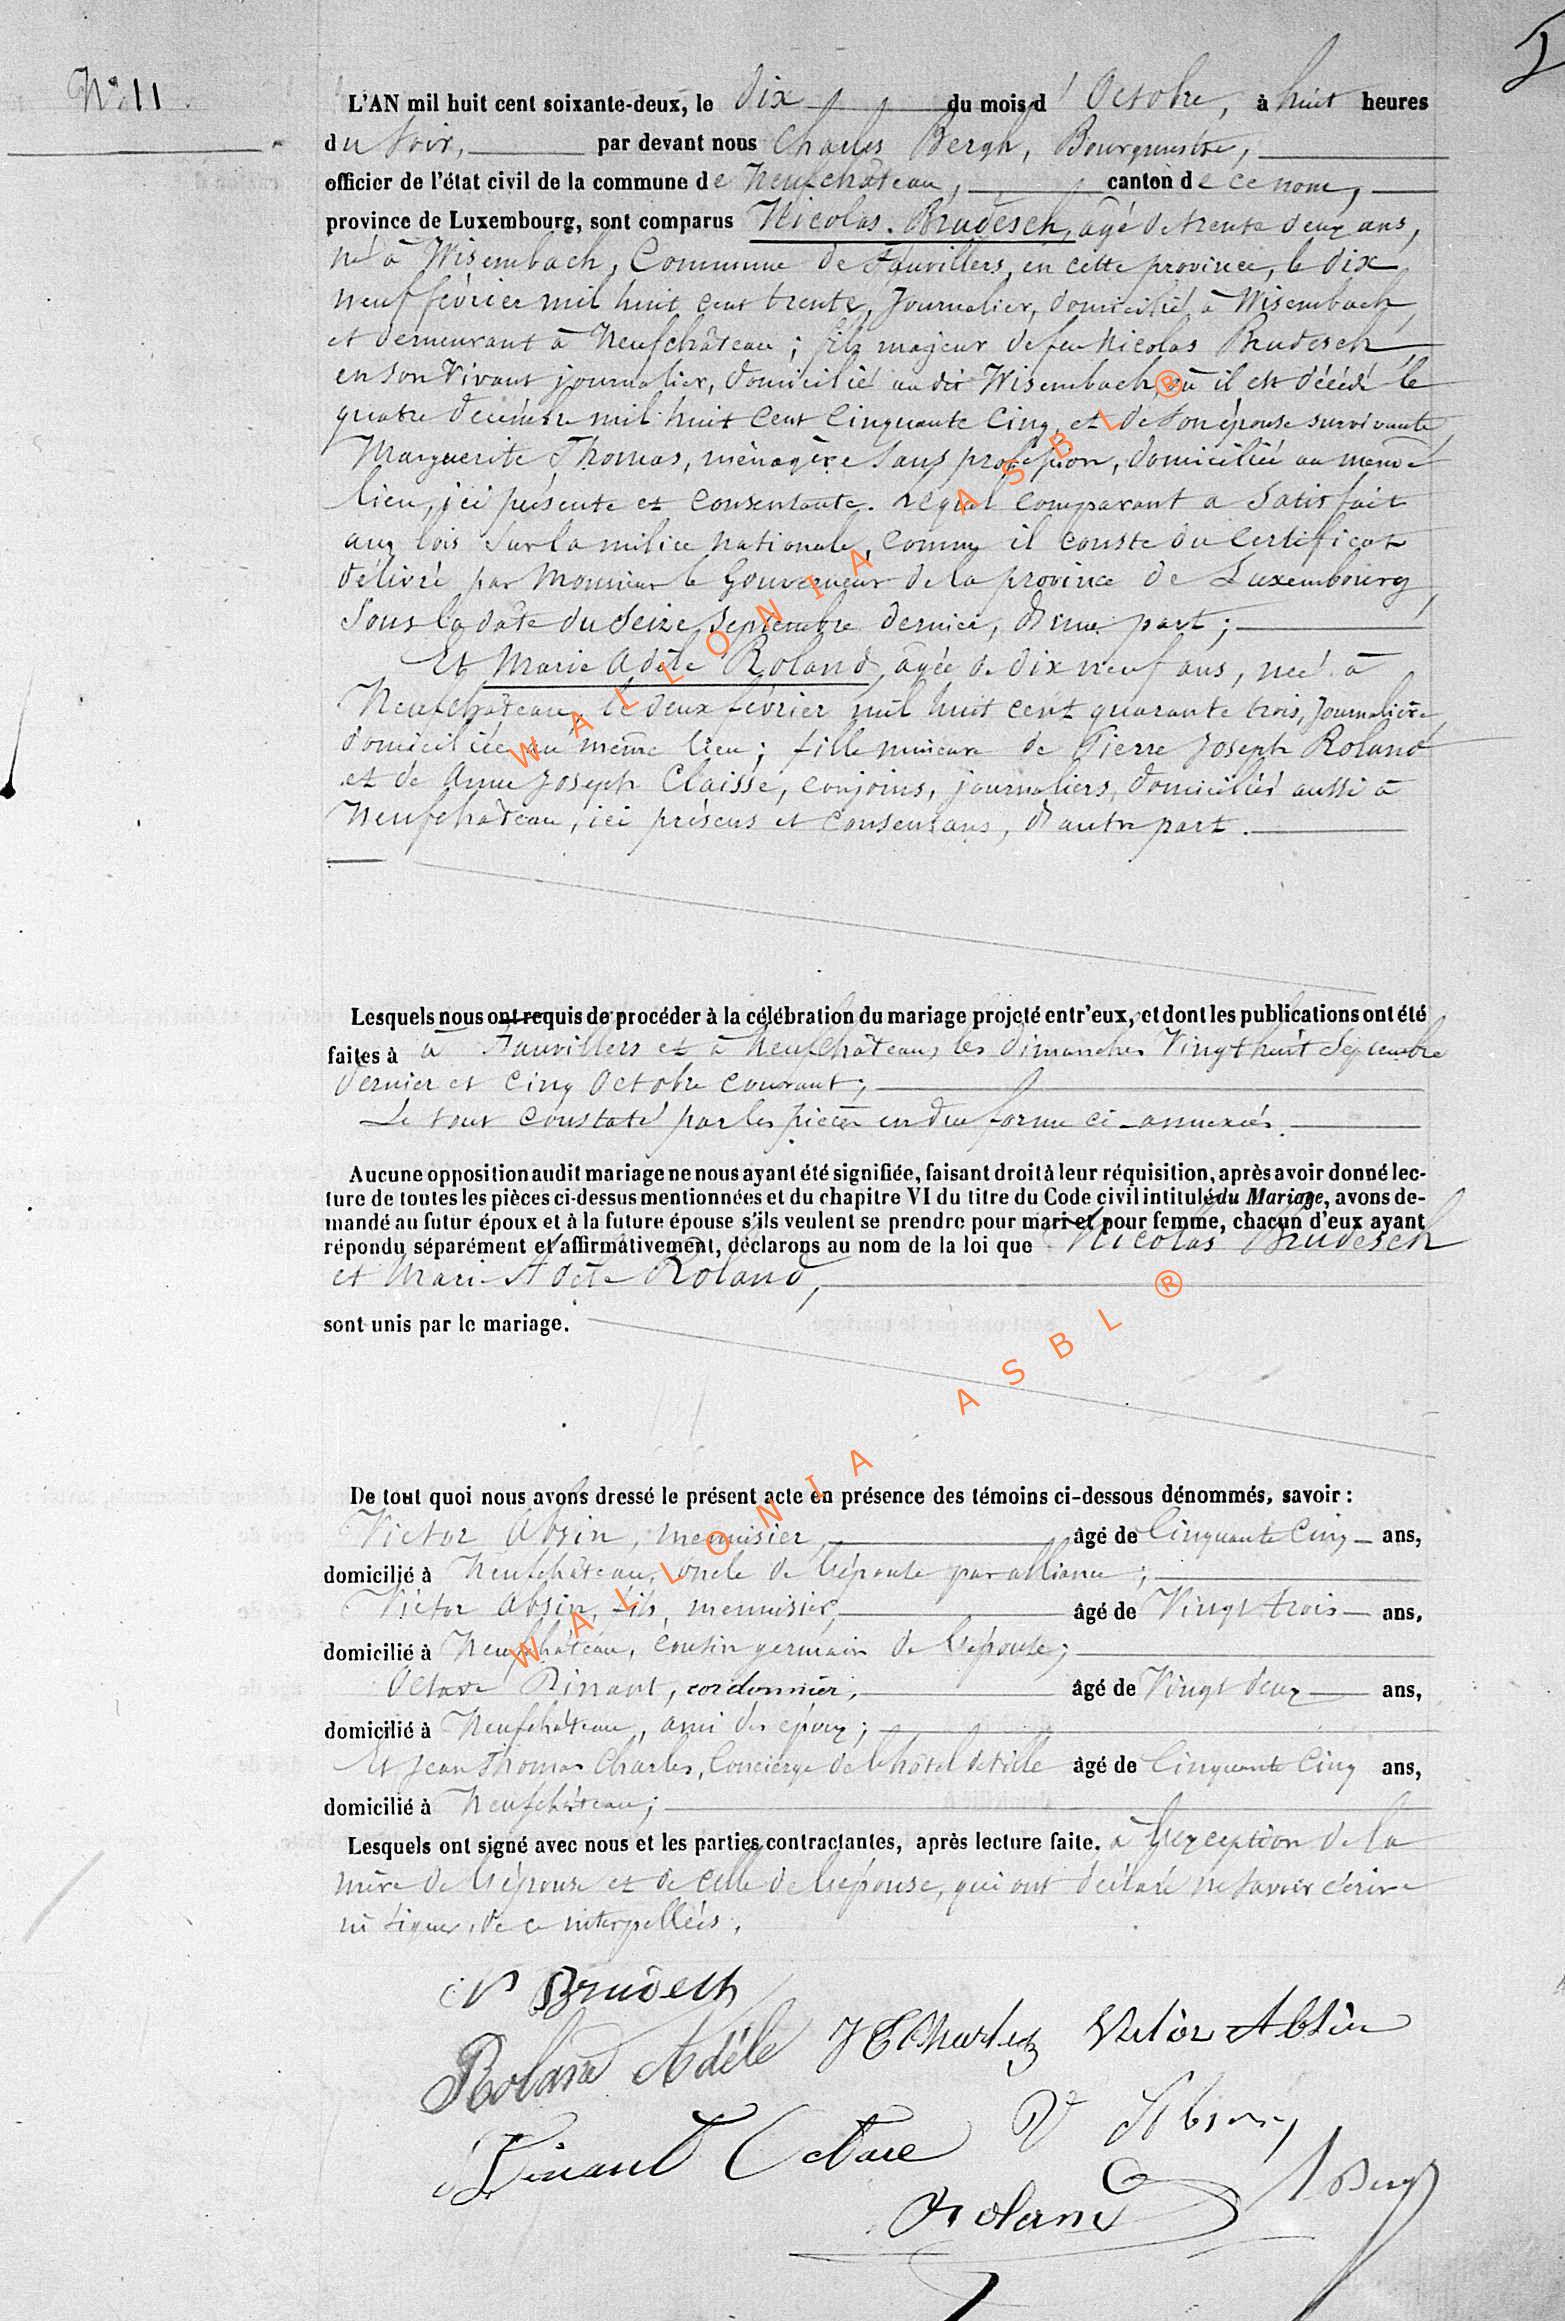 N° 11.
L'AN mil huit cent soixante-deux, le dix du mois d'Octobre, à huit heures
du soir, par devant nous Charles Bergh, Bourgmestre,
officier de l'état civil de la commune de Neufchâteau, canton de ce nom,
province de Luxembourg, sont comparus Nicolas Brudesch, âgé de trente deux ans,
né à Wisembach, Commune de Fauvillers, en cette province, le dix
neuf février mil huit cent trente, Journalier, domicilié à Wisembach,
et demeurant à Neufchâteau; fils majeur de feu Nicolas Brudesch,
en son vivant journalier, domicilié au dit Wisembach, où il est décédé le
quatre décembre mil huit cent cinquante cinq, et de son épouse survivante
Marguerite Thomas, ménagère sans profession, domiciliée au même
lieu, ici présente et consentante. Lequel comparant a satisfait
aux lois sur la milice nationale, comme il conste du certificat
délivré par Monsieur le Gouverneur de la province de Luxembourg,
sous la date du seize Septembre dernier, d'une part;
Et Marie Adèle Roland, âgée de dix neuf ans, née à
Neufchâteau, le deux février mil huit cent quarante trois, Journalière,
domiciliée au même lieu; fille mineure de Pierre Joseph Roland
et de Anne Joseph Claisse, conjoins, journaliers, domiciliés aussi à
Neufchâteau, ici présens et consentans, d'autre part.
Lesquels nous ont requis de procéder à la célébration du mariage projeté entr'eux, et dont les publications ont été
faites à à Fauvillers et à Neufchâteau, les dimanches Vingt huit Septembre
dernier et cinq Octobre courant;
Le tout constaté par les pièces en due forme ci-annexées.
Aucune opposition audit mariage ne nous ayant été signifiée, faisant droit à leur réquisition, après avoir donné lec-
ture de toutes les pièces ci-dessus mentionnées et du chapitre VI du titre du Code civil intitulé du Mariage, avons de-
mandé au futur époux et à la future épouse s'ils veulent se prendre pour mari et pour femme, chacun d'eux ayant
répondu séparément et affirmativement, déclarons au nom de la loi que Nicolas Brudesch
et Marie Adèle Roland,
sont unis par le mariage.
De tout quoi nous avons dressé le présent acte en présence des témoins ci-dessous dénommés, savoir :
Victor Absin, menuisier, âgé de Cinquante cinq ans,
domicilié à Neufchâteau, oncle de l'épouse par alliance;
Victor Absin, fils, menuisier, âgé de Vingt trois ans,
domicilié à Neufchâteau, cousin germain de l'épouse;
Octave Dinant, cordonnier, âgé de Vingt deux ans,
domicilié à Neufchâteau, ami des époux;
Et Jean Thomas Charles, Concierge de l'hôtel de ville âgé de Cinquante Cinq ans,
domicilié à Neufchâteau;
Lesquels ont signé avec nous et les parties contractantes, après lecture faite, à l'exception de la
mère de l'époux et de celle de l'épouse, qui ont déclaré ne savoir écrire
ni signer, de ce interpellées.
N Brudesch
Roland Adèle J T Charles Victor Absin
Dinant Octave V Absin
Roland C Bergh
WALLONIA ASBL ®
WALLONIA ASBL ®